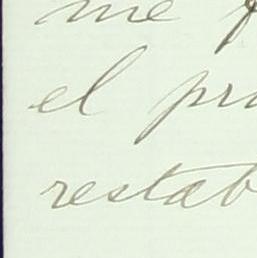 me
el pro
restab